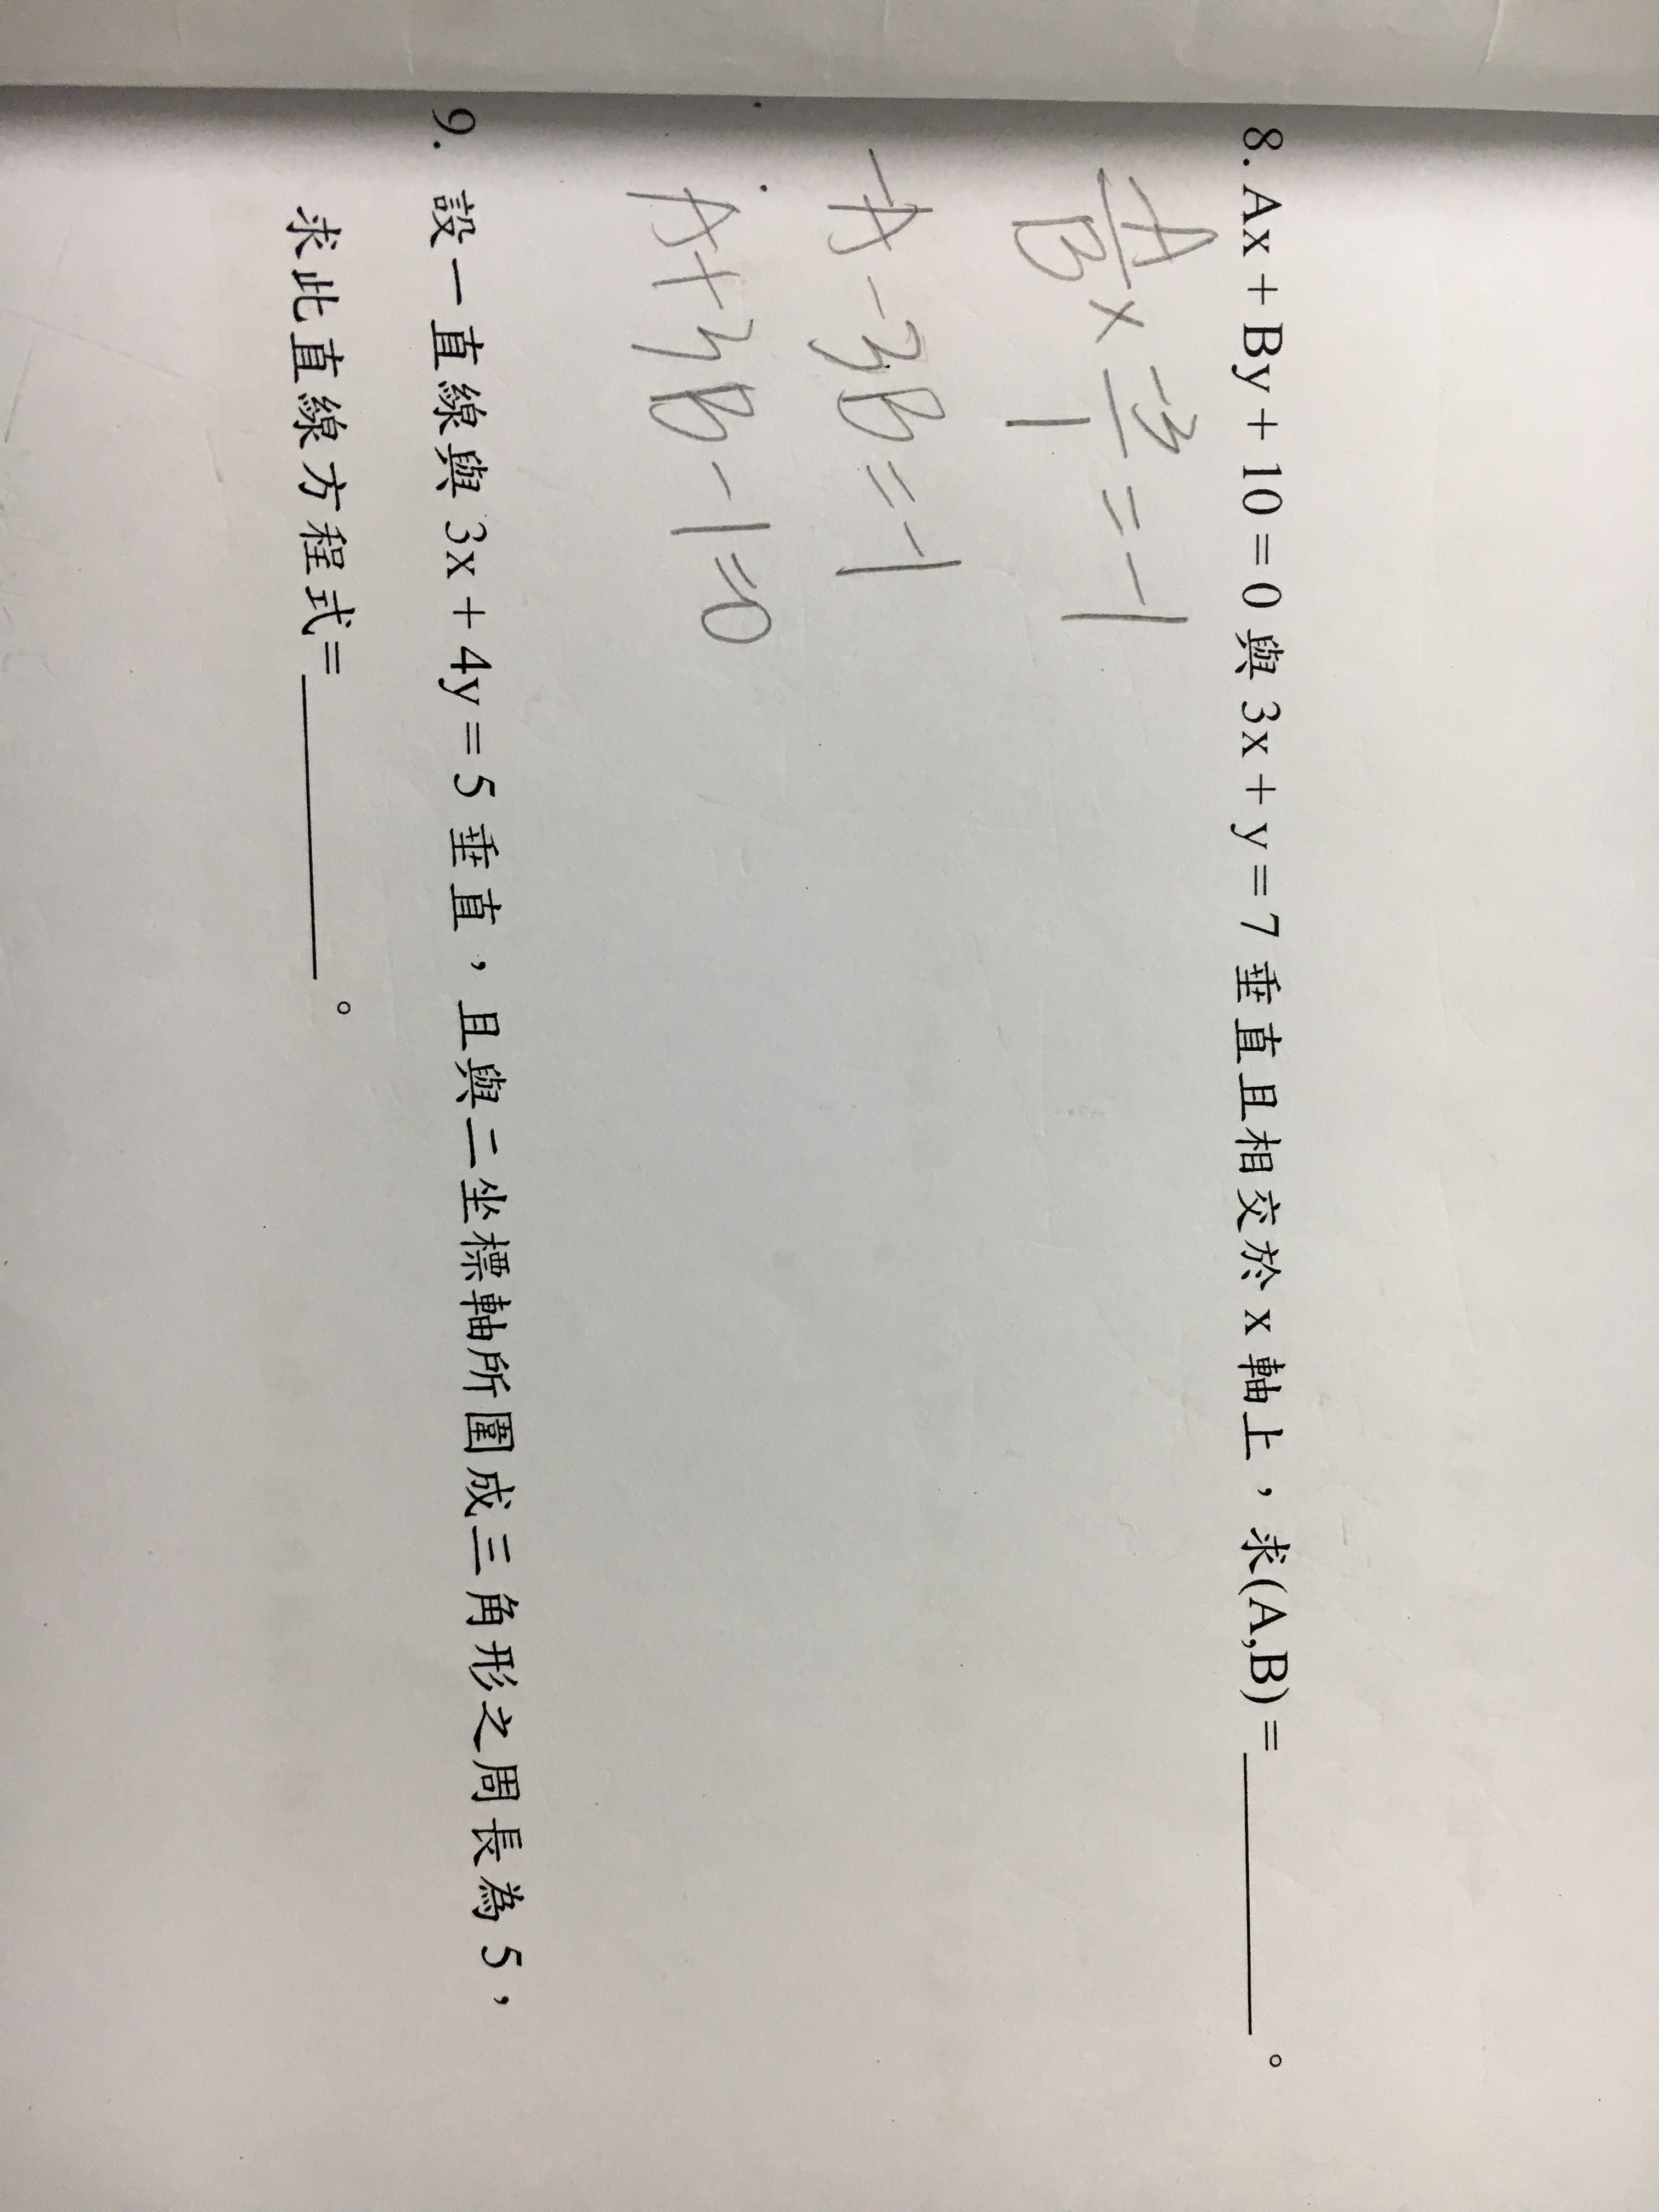 8. Ax + By + 10 = 0 與 3x + y = 7 垂直且相交於 x 軸上，求(A,B) = ________。
-A/B × -3/1 = -1
-A - 3B = -1
A + 3B - 1 = 0
9. 設一直線與 3x + 4y = 5 垂直，且與二坐標軸所圍成三角形之周長為 5，
求此直線方程式= ________。